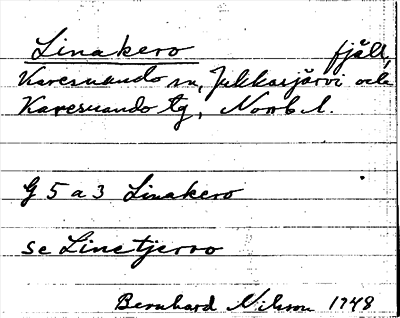 Linakero fjäll,
Karesuando sn, Jukkasjärvi och
Karesuando tg, Norrb. l.
G 5 a 3 Linakero
se Linetjervo
Bernhard Nilsson 1948